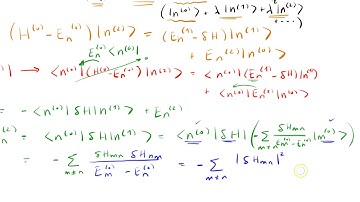 (|n⁽⁰⁾⟩ + λ|n⁽¹⁾⟩ + λ²|n⁽²⁾⟩
...)
(H⁽⁰⁾ - Eₙ⁽⁰⁾) |n⁽²⁾⟩ = (Eₙ⁽¹⁾ - δH) |n⁽¹⁾⟩
+ Eₙ⁽²⁾ |n⁽⁰⁾⟩
Eₙ⁽⁰⁾ ⟨n⁽⁰⁾|
| → ⟨n⁽⁰⁾| (H⁽⁰⁾ - Eₙ⁽⁰⁾) |n⁽²⁾⟩ = ⟨n⁽⁰⁾| (Eₙ⁽¹⁾ - δH) |n⁽¹⁾⟩
+ ⟨n⁽⁰⁾| Eₙ⁽²⁾ |n⁽⁰⁾⟩
= - ⟨n⁽⁰⁾| δH |n⁽¹⁾⟩ + Eₙ⁽²⁾
= ⟨n⁽⁰⁾| δH |n⁽¹⁾⟩ = ⟨n⁽⁰⁾| δH | (- Σ_{m≠n} δHₘₙ / (Eₘ⁽⁰⁾ - Eₙ⁽⁰⁾) |m⁽⁰⁾⟩)
= - Σ_{m≠n} δHₘₙ δHₙₘ / (Eₘ⁽⁰⁾ - Eₙ⁽⁰⁾) = - Σ_{m≠n} |δHₘₙ|²